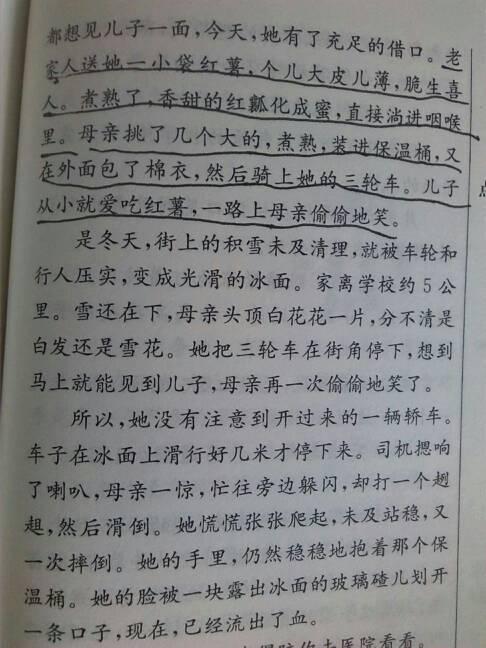 都想见儿子一面，今天，她有了充足的借口。老
家人送她一小袋红薯，个儿大皮儿薄，脆生喜
人。煮熟了，香甜的红瓤化成蜜，直接淌进咽喉
里。母亲挑了几个大的，煮熟，装进保温桶，又
在外面包了棉衣，然后骑上她的三轮车。儿子
从小就爱吃红薯，一路上母亲偷偷地笑。
是冬天，街上的积雪未及清理，就被车轮和
行人压实，变成光滑的冰面。家离学校约5公
里。雪还在下，母亲头顶白花花一片，分不清是
白发还是雪花。她把三轮车在街角停下，想到
马上就能见到儿子，母亲再一次偷偷地笑了。
所以，她没有注意到开过来的一辆轿车。
车子在冰面上滑行好几米才停下来。司机摁响
了喇叭，母亲一惊，忙往旁边躲闪，却打一个趔
趄，然后滑倒。她慌慌张张爬起，未及站稳，又
一次摔倒。她的手里，仍然稳稳地抱着那个保
温桶。她的脸被一块露出冰面的玻璃碴儿划开
一条口子，现在，已经流出了血。
陪你去医院看看。
点